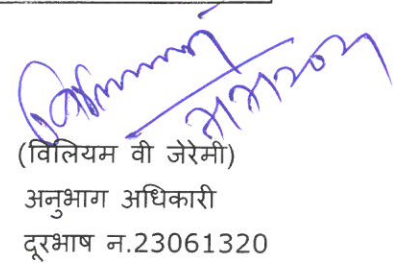 (विलियम वी जेरेमी)
अनुभाग अधिकारी
दूरभाष न.23061320